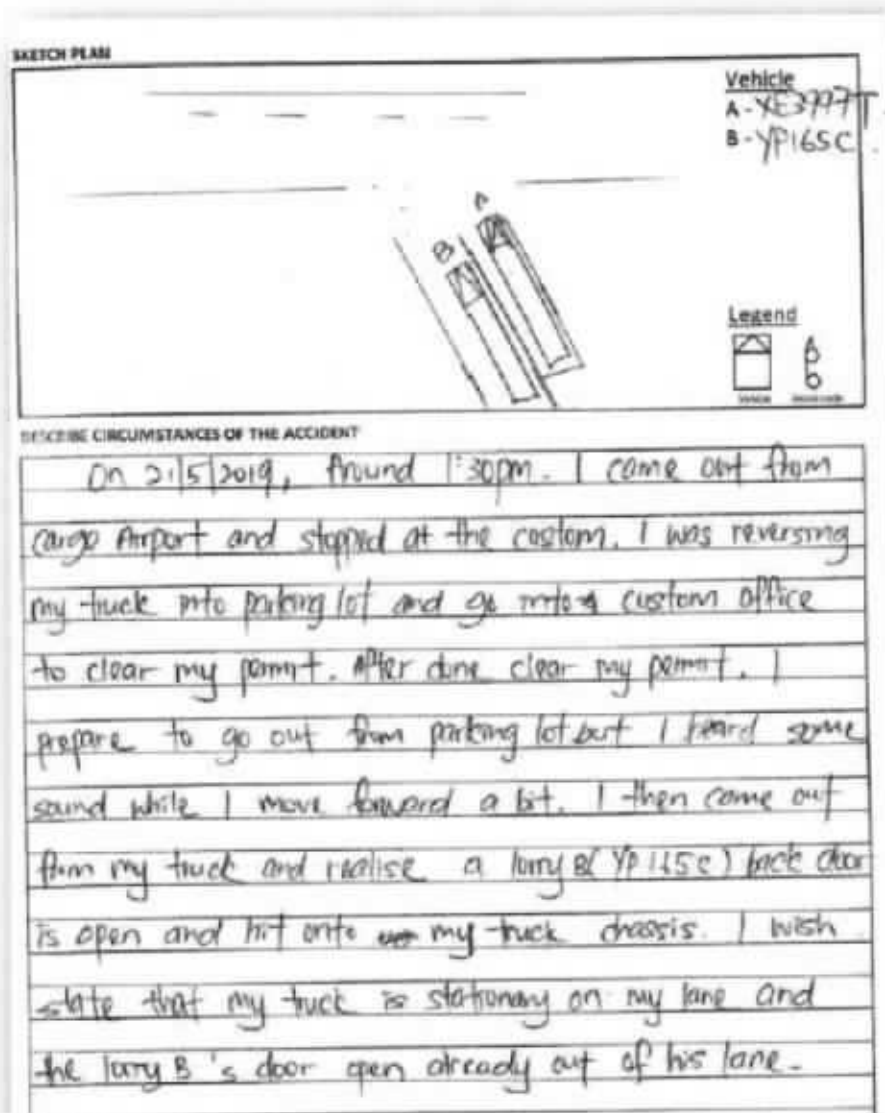 SKETCH PLAN
Vehicle
A - YE3997T
B - YP165C
A
B
Legend
Vehicle
DESCRIBE CIRCUMSTANCES OF THE ACCIDENT
On 21/5/2019, Around 1:30pm. I came out from
cargo Airport and stopped at the costom. I was reversing
my truck into parking lot and go into custom office
to clear my permit. After done clear my permit. I
prepare to go out from parking lot but I heard some
sound while I move forward a bit. I then come out
from my truck and realise a lorry B( YP 165c) back door
is open and hit onto my truck chassis. I wish
state that my truck is stationary on my lane and
the lorry B's door open already out of his lane.